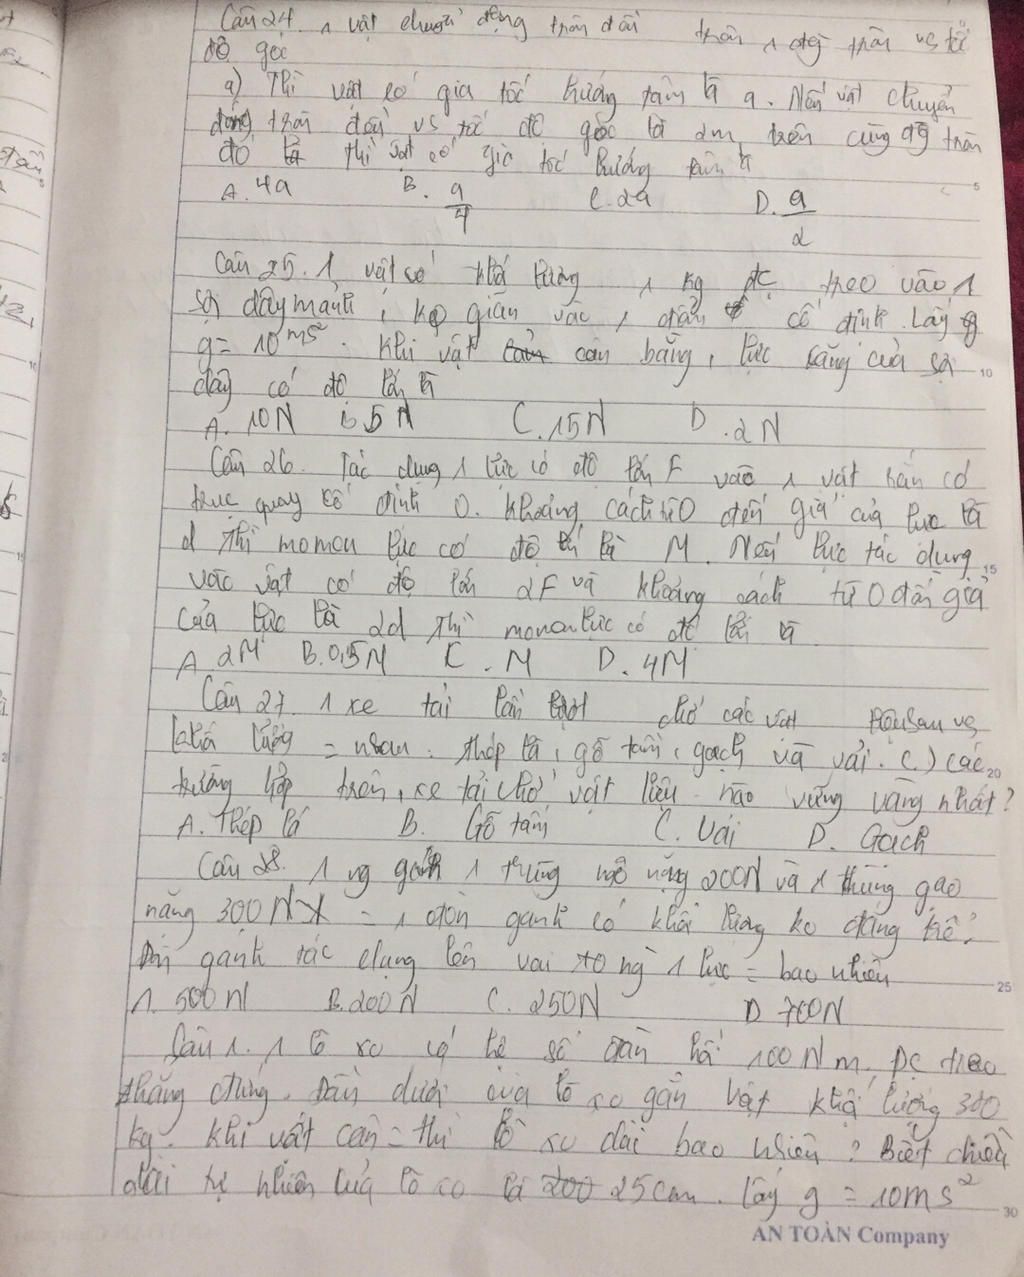 Câu 24. 1 vật chuyển động tròn đều trên 1 đg tròn vs tốc
độ góc
a) Thì vật có gia tốc hướng tâm là a. Nếu vật chuyển
động tròn đều vs tốc độ góc là 2m, trên cùng đg tròn
đó thì vật có gia tốc hướng tâm là
A. 4a B. a/4 C. 2a D. a/2
5
Câu 25. 1 vật có khố lượng 1 kg đc treo vào 1
sợi dây mảnh, ko giãn vào 1 đầu cố định. Lấy
g = 10 ms². Khi vật cân bằng, lực căng của sợi
10
dây có độ lớn là
A. 10N B 5N C. 15N D. 2N
Câu 26. Tác dụng 1 lực có độ lớn F vào 1 vật rắn có
trục quay cố định O. Khoảng cách từ O đến giá của lực là
d thì momen lực có độ là M. Nếu lực tác dụng
15
vào vật có độ lớn 2F và khoảng cách từ O đến giá
của lực là 2d thì momen lực có độ lớn là
A. 2M B. 0,5M C. M D. 4M
Câu 27. 1 xe tải lần lượt chở các vật vs
khố lượng = nhau. thép lá, gỗ tấm, gạch và vải. (.) các
20
trường hợp trên, xe tải chở vật liệu nào vững vàng nhất?
A. Thép lá B. Gỗ tấm C. Vải D. Gạch
Câu 28. 1 ng gánh 1 thùng ngô nặng 200N và 1 thùng gạo
nặng 300N = 1 đòn gánh có khối lượng ko đáng kể.
gánh tác dụng lên vai 1 lực = bao nhiêu
25
A. 500N B. 200N C. 250N D 700N
Câu 1. 1 lò xo có hệ số đàn hồi 100Nm. Đc treo
thẳng đứng. Đầu dưới của lò xo gắn vật khố lượng 300
kg. Khi vật cân = thì lò xo dài bao nhiêu? Biết chiều
dài tự nhiên của lò xo là 25cm. Lấy g = 10ms²
30
AN TOÀN Company